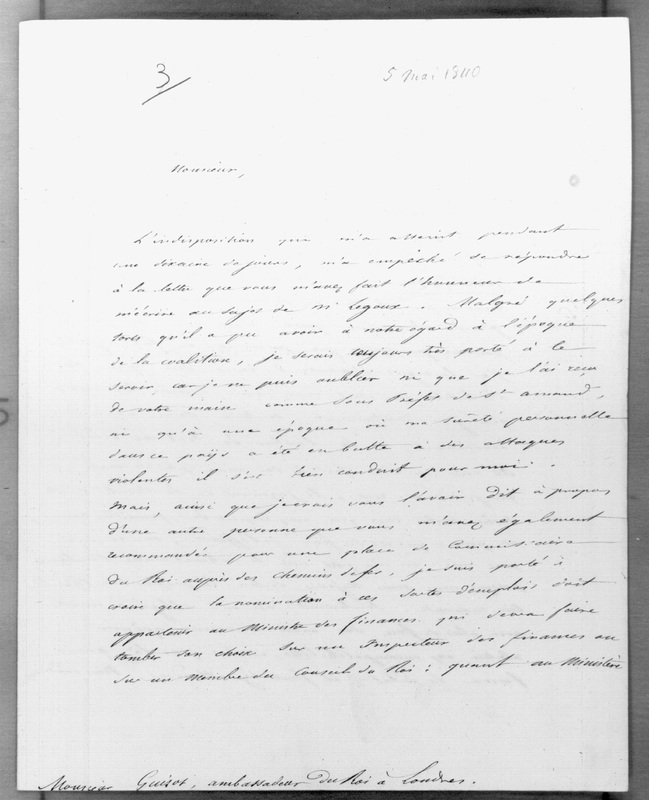 3
5 mai 1840
Monsieur,
L'indisposition qui m'a atteint pendant
une dixaine de jours, m'a empêché de répondre
à la lettre que vous m'avez fait l'honneur de
m'écrire au sujet de Mr Legoux. Malgré quelques
torts qu'il a pu avoir à notre égard à l'époque
de la coalition, je serais toujours très porté à le
servir, car je ne puis oublier ni que je l'ai reçu
de votre main comme Sous Préfet de St amand,
ni qu'à une époque où ma sureté personnelle
dans ce pays a été en butte à des attaques
violentes il s'est très conduit pour moi.
Mais, ainsi que je crois vous l'avoir dit à propos
d'une autre personne que vous m'avez également
recommandée pour une place de Commissaire
du Roi auprès des chemins de fer, je suis porté à
croire que la nomination à ces sortes d'emplois doit
appartenir au Ministre des finances qui devra faire
tomber son choix sur un Inspecteur des finances ou
sur un Membre du Conseil du Roi : quant au Ministère
Monsieur Guizot, ambassadeur du Roi à Londres.